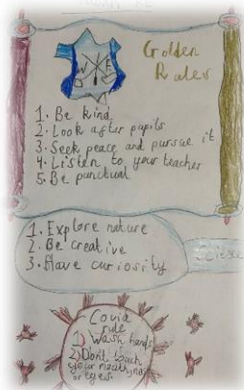 Golden
Rules
1. Be kind
2. Look after pupils
3. Seek peace and pursue it
4. Listen to your teacher
5. Be punctual
1. Explore nature
2. Be creative
3. Have curiosity
Covid
rule
1) Wash hands
2) Don't touch
your mouth, nose
or eyes.